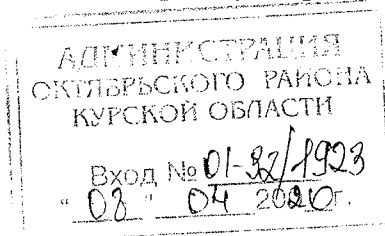 АДМИНИСТРАЦИЯ
ОКТЯБРЬСКОГО РАЙОНА
КУРСКОЙ ОБЛАСТИ
Вход № 01-32/1923
"08" 04 2020г.